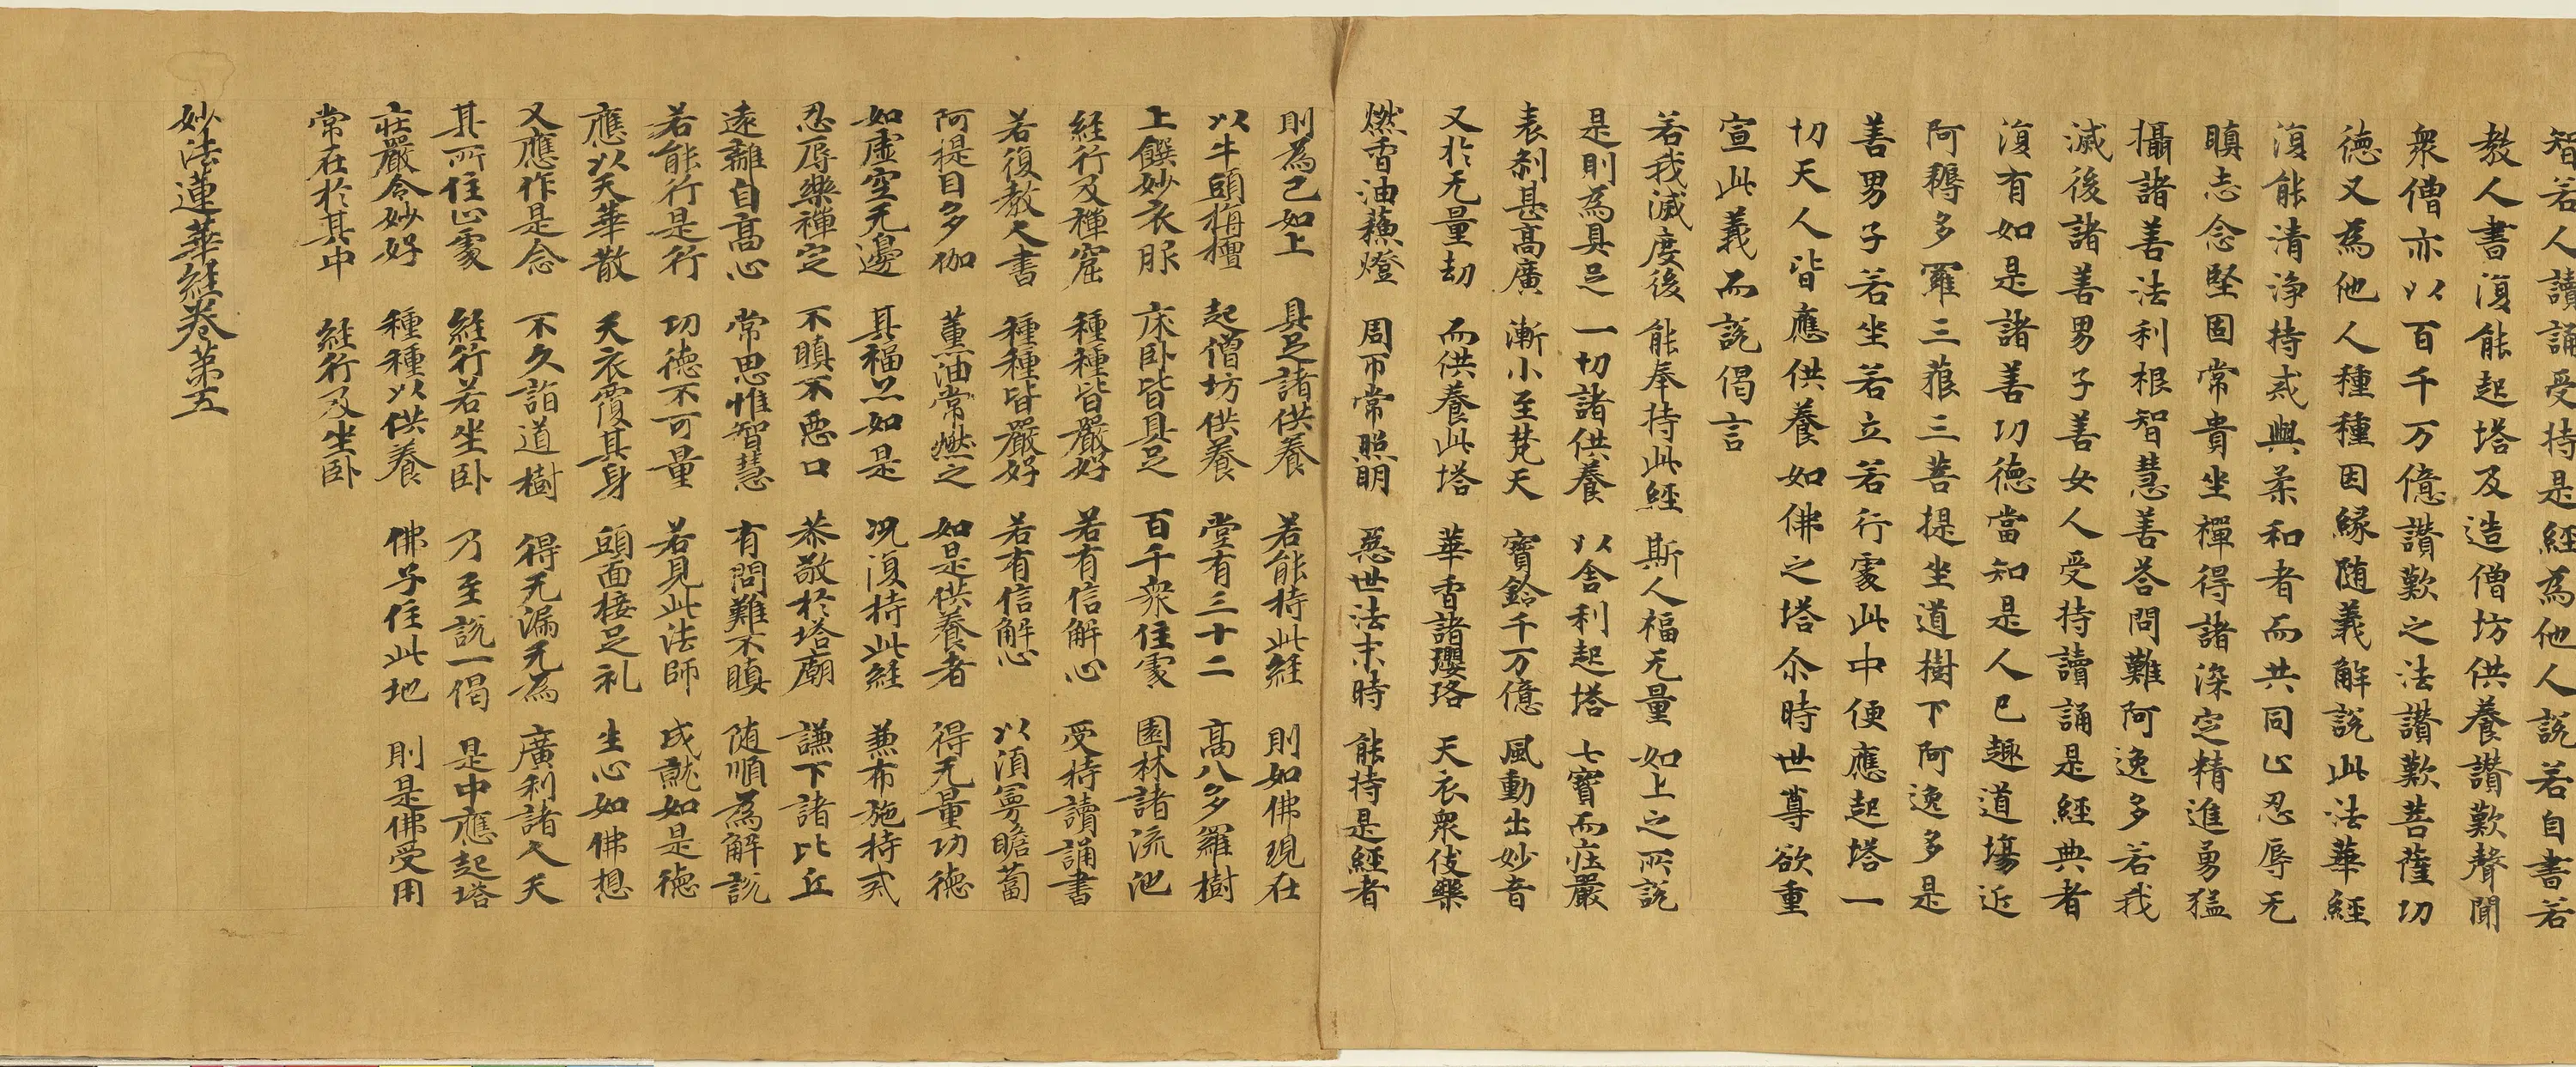 智若人讀誦受持是經為他人說若自書若
教人書復能起塔及造僧坊供養讚歎聲聞
衆僧亦以百千万億讚歎之法讚歎菩薩功
徳又為他人種種因緣随義解說此法華經
復能清淨持戒與柔和者而共同止忍辱无
瞋志念堅固常貴坐禪得諸深定精進勇猛
攝諸善法利根智慧善荅問難阿逸多若我
滅後諸善男子善女人受持讀誦是經典者
復有如是諸善功德當知是人已趣道場近
阿耨多羅三藐三菩提坐道樹下阿逸多是
善男子若坐若立若行處此中便應起塔一
切天人皆應供養如佛之塔尒時世尊欲重
宣此義而說偈言
若我滅度後 能奉持此經 斯人福无量 如上之所說
是則為具足 一切諸供養 以舎利起塔 七寶而莊嚴
表剎甚高廣 漸小至梵天 寶鈴千万億 風動出妙音
又於无量劫 而供養此塔 華香諸瓔珞 天衣衆伎樂
燃香油蘇燈 周帀常照明 惡世法末時 能持是經者
則為已如上 具足諸供養 若能持此經 則如佛現在
以牛頭栴檀 起僧坊供養 堂有三十二 高八多羅樹
上饌妙衣服 床卧皆具足 百千衆住處 園林諸流池
經行及禪窟 種種皆嚴好 若有信解心 受持讀誦書
若復教人書 種種皆嚴好 若有信解心 以湏曼瞻蔔
阿提目多伽 薫油常燃之 如是供養者 得无量功德
如虛空无邊 其福亦如是 况復持此經 兼布施持戒
忍辱樂禪定 不瞋不惡口 恭敬於塔廟 謙下諸比丘
遠離自高心 常思惟智慧 有問難不瞋 随順為解說
若能行是行 功德不可量 若見此法師 成就如是德
應以天華散 天衣覆其身 頭面接足礼 生心如佛想
又應作是念 不久詣道樹 得无漏无為 廣利諸人天
其所住止處 經行若坐卧 乃至說一偈 是中應起塔
莊嚴令妙好 種種以供養 佛子住此地 則是佛受用
常在於其中 經行及坐卧
妙法蓮華經卷第五